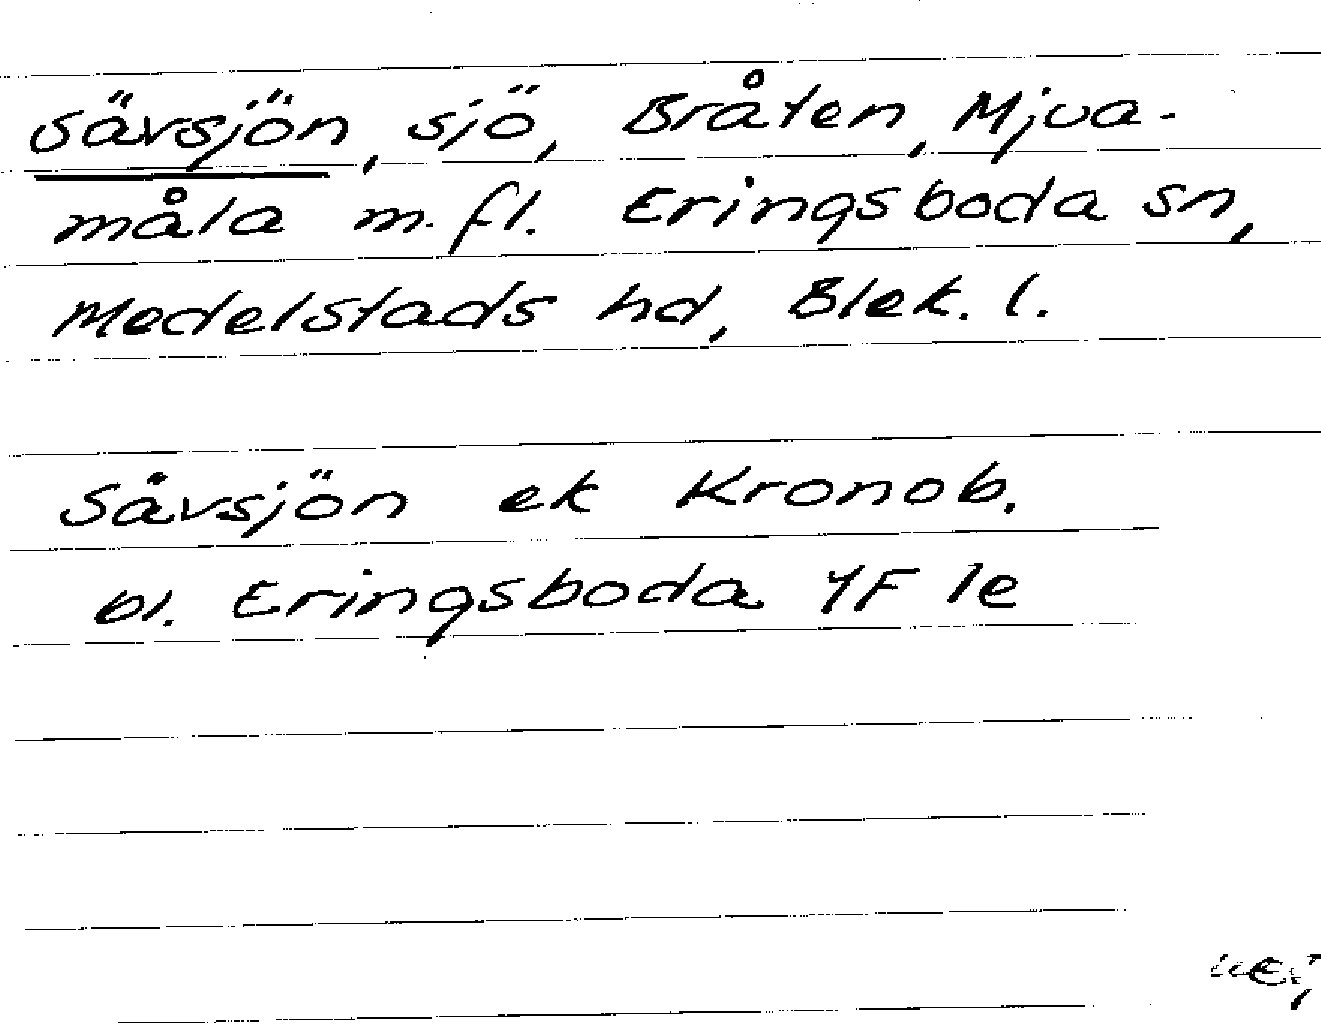 Sävsjön, sjö, Bråten, Mjua-
måla m.fl. Eringsboda sn,
Medelstads hd, Blek. l.
Sävsjön ek Kronob.
bl. Eringsboda 4F 1e